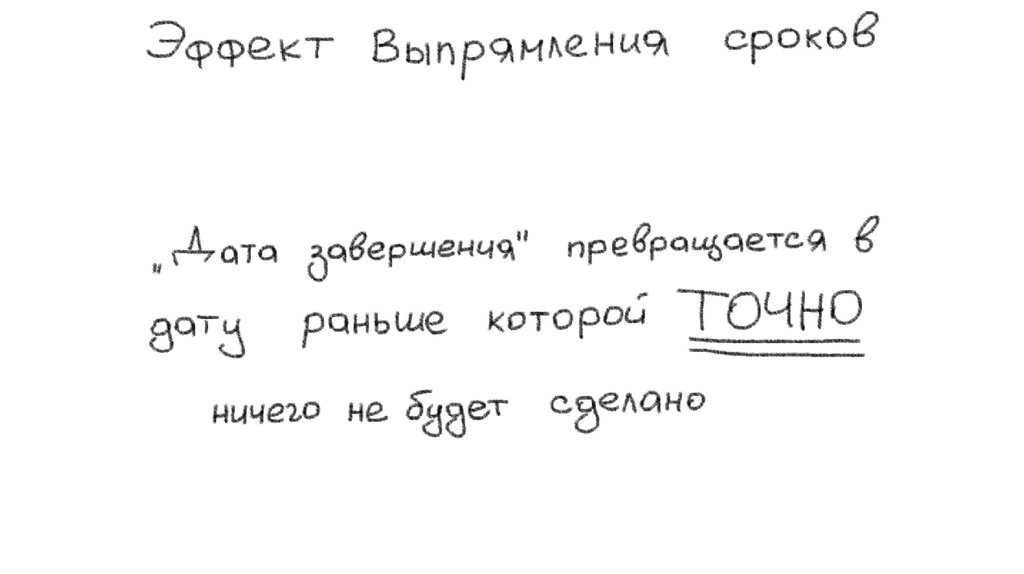 Эффект Выпрямления сроков
„Дата завершения" превращается в
дату раньше которой ТОЧНО
ничего не будет сделано